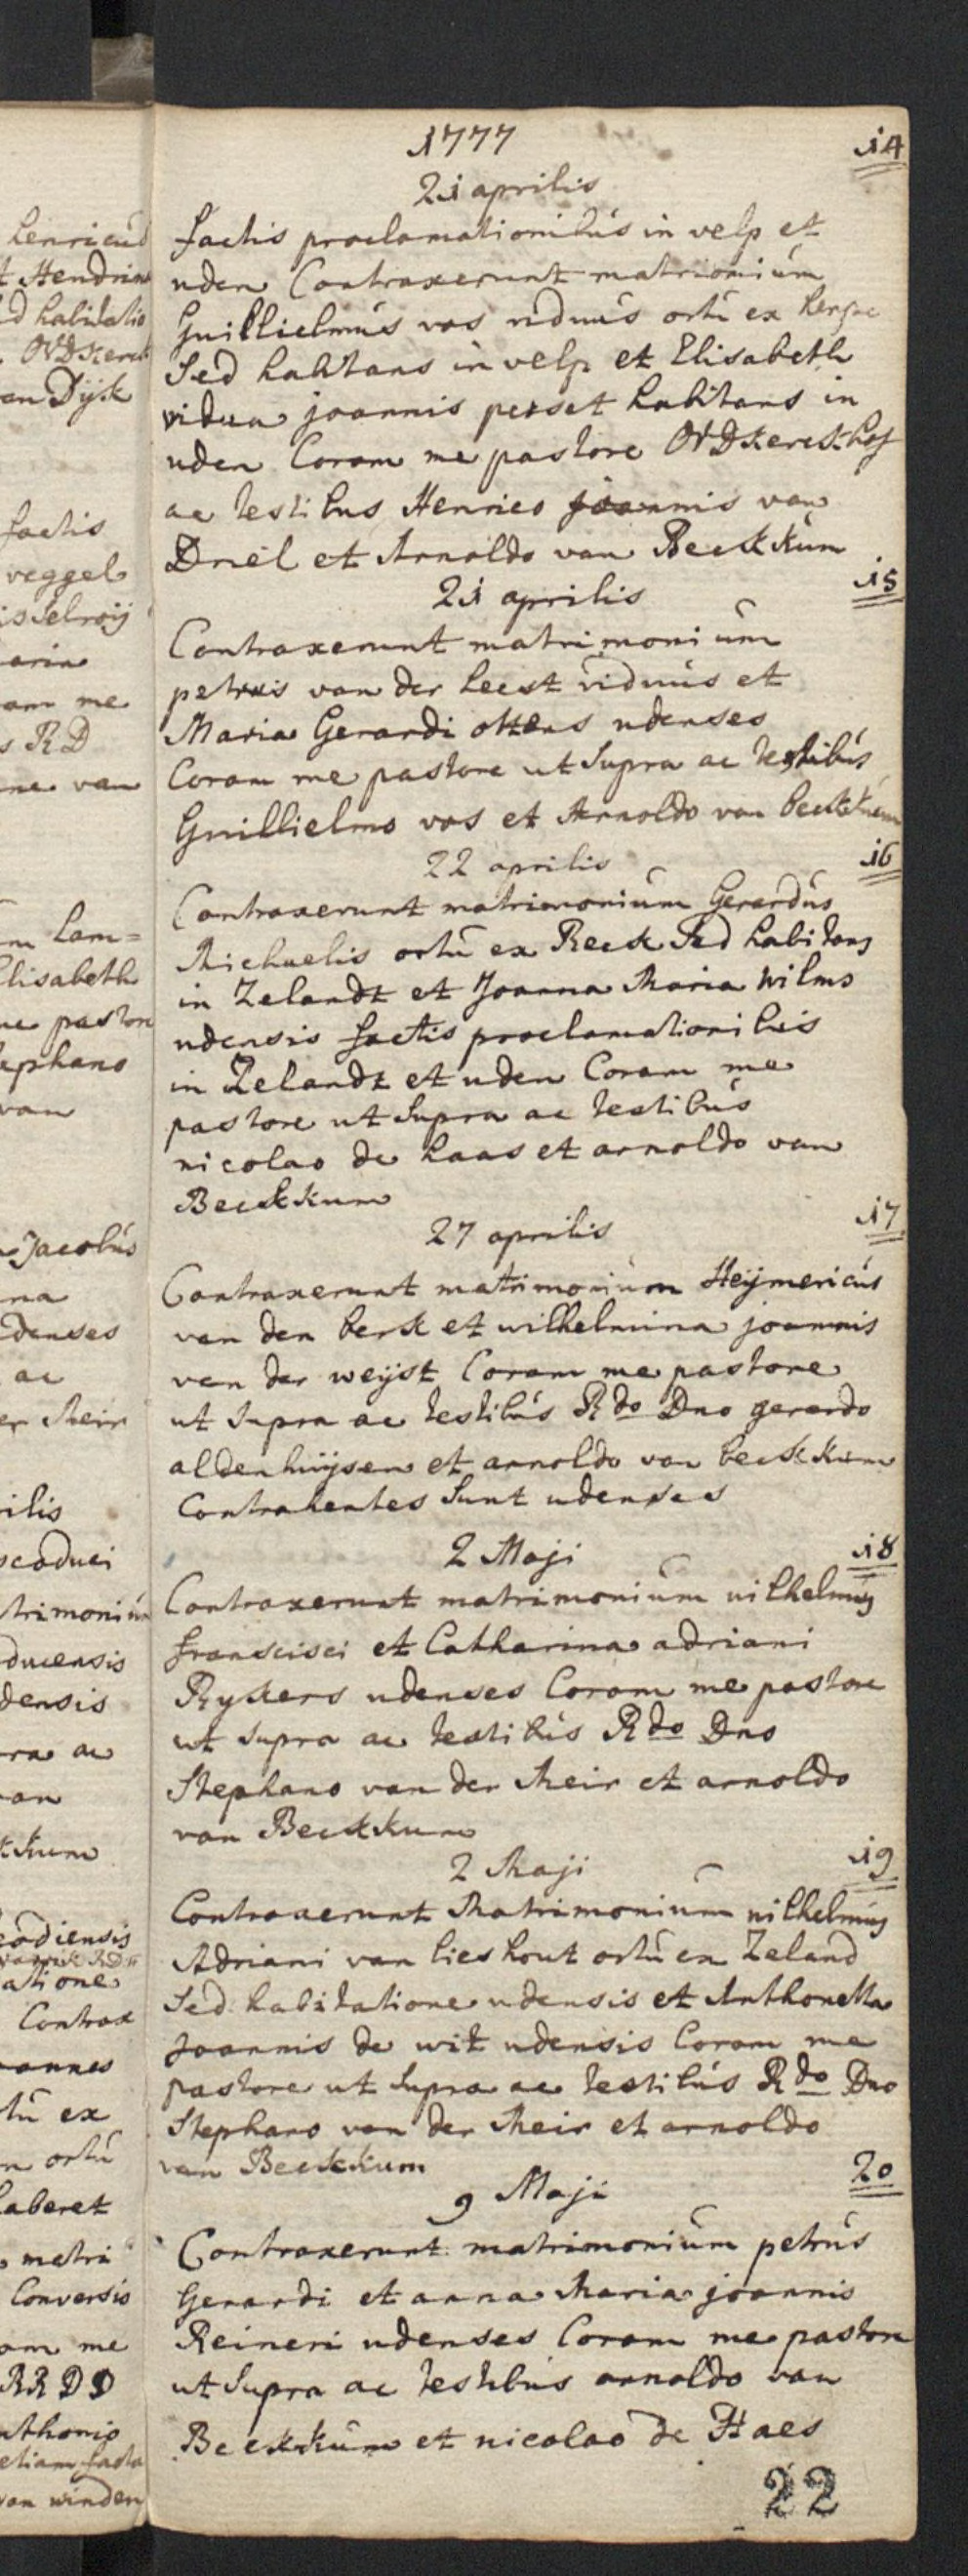 1777
14
21 aprilis
factis proclamationibus in velp et
uden Contraxerunt matrimonium
Guillielmus vos viduus ortu ex herpe
Sed habitans in velp et Elisabeth
vidua joannis perset habitans in
uden Coram me pastore OVDKerckhof
ac testibus Henrico joannis van
Driel et Arnoldo van Beekkum
21 aprilis
15
Contraxerunt matrimonium
petrus van der heest viduus et
Maria Gerardi ottens udenses
Coram me pastore ut Supra ac testibus
Guillielmo vos et Arnoldo van beekkum
22 aprilis
16
Contraxerunt matrimonium Gerardus
Michaelis ortu ex Reek Sed habitans
in Zelandt et Joanna Maria Wilms
udensis factis proclamationibus
in Zelandt et uden Coram me
pastore ut Supra ac testibus
nicolao de haas et arnoldo van
Beekkum
27 aprilis
17
Contraxerunt matrimonium Heijmericus
van den berk et wilhelmina joannis
van der weijst Coram me pastore
ut Supra ac testibus Rdo Dno gerardo
aldenhuijsen et arnoldo van beekkum
Contrahentes Sunt udenses
2 Maji
18
Contraxerunt matrimonium wilhelmus
franscisci et Catharina adriani
Rykers udenses Coram me pastore
ut Supra ac testibus Rdo Dno
Stephano van der Meir et arnoldo
van Beekkum
2 Maji
19
Contraxerunt Matrimonium wilhelmus
Adriani van lieshout ortu en Zeland
Sed habitatione udensis et Anthonetta
Joannis de wit udensis Coram me
pastore ut Supra ac testibus Rdo Dno
Stephano van der Meir et arnoldo
van Beekkum
9 Maji
20
Contraxerunt matrimonium petrus
Gerardi et anna Maria joannis
Reineri udenses Coram me pastore
ut Supra ac testibus arnoldo van
Beekkum et nicolao de Haes
22